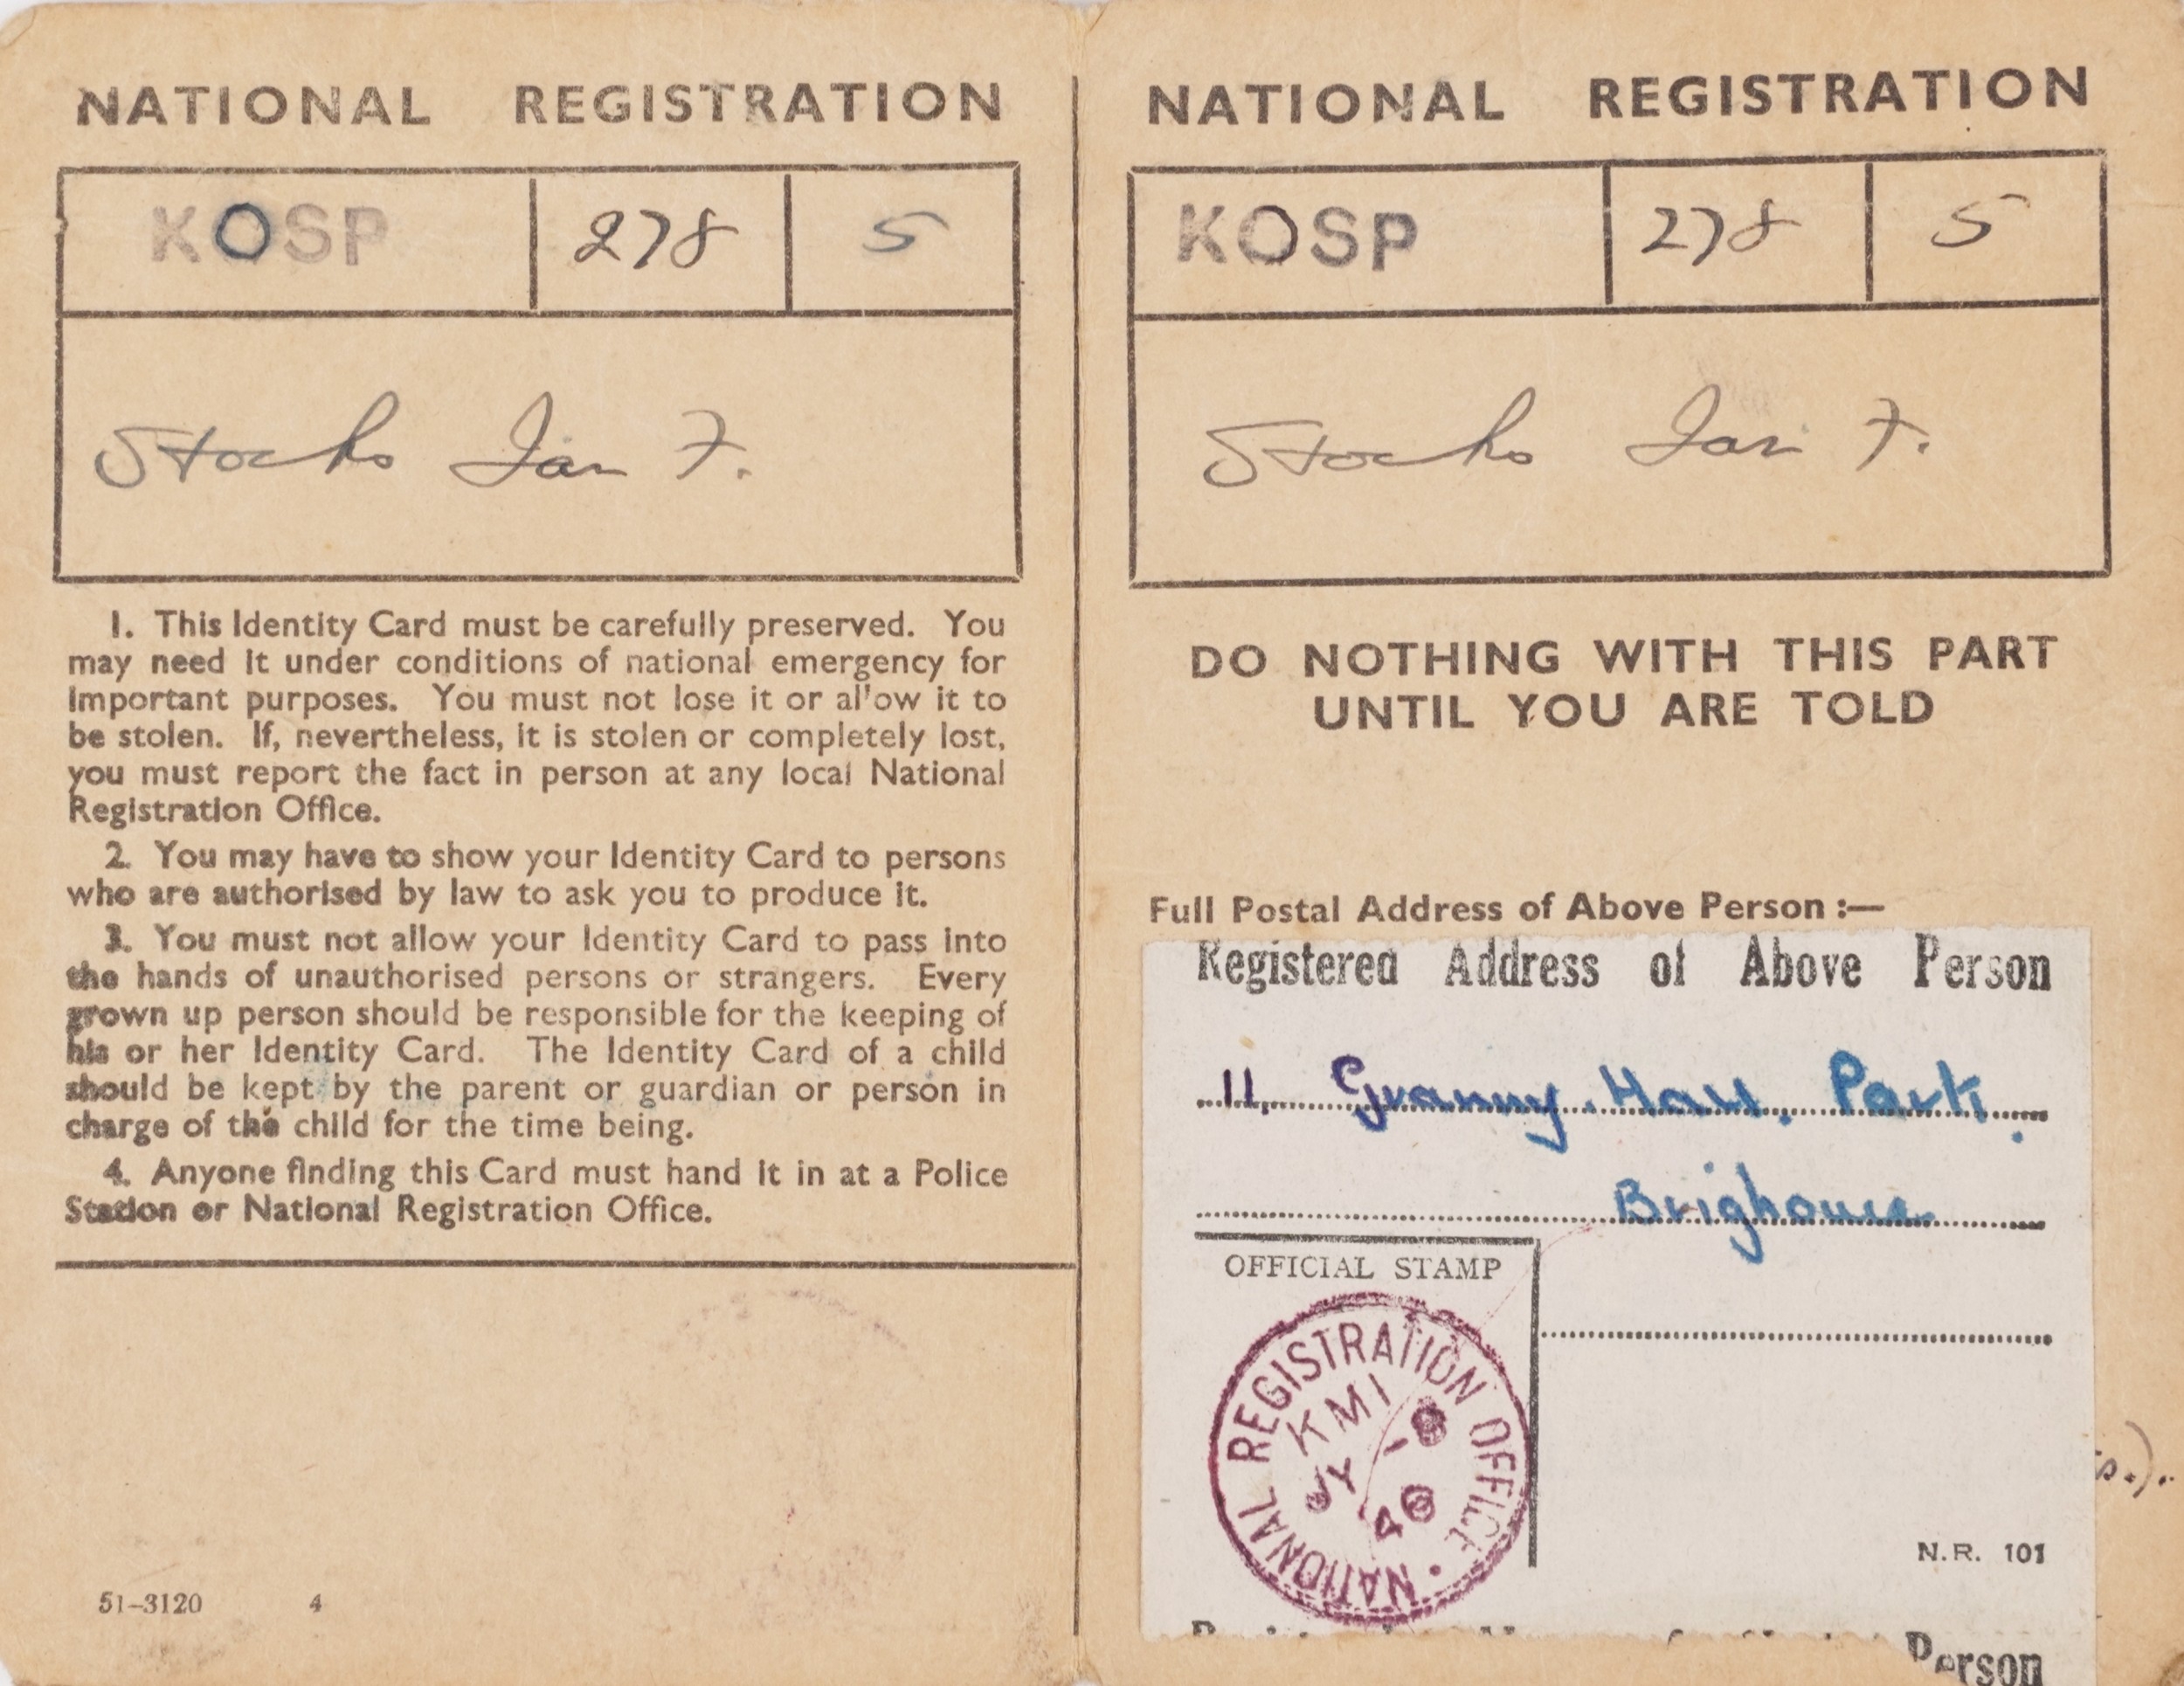 NATIONAL REGISTRATION
KOSP 278 5
Stocks Ian F.
1. This Identity Card must be carefully preserved. You
may need it under conditions of national emergency for
important purposes. You must not lose it or al'ow it to
be stolen. If, nevertheless, it is stolen or completely lost,
you must report the fact in person at any local National
Registration Office.
2. You may have to show your Identity Card to persons
who are authorised by law to ask you to produce it.
3. You must not allow your Identity Card to pass into
the hands of unauthorised persons or strangers. Every
grown up person should be responsible for the keeping of
his or her Identity Card. The Identity Card of a child
should be kept by the parent or guardian or person in
charge of the child for the time being.
4. Anyone finding this Card must hand it in at a Police
Station or National Registration Office.
51-3120 4
NATIONAL REGISTRATION
KOSP 278 5
Stocks Ian F.
DO NOTHING WITH THIS PART
UNTIL YOU ARE TOLD
Full Postal Address of Above Person :—
Registered Address of Above Person
11. Granny Hall. Park.
Brighouse
OFFICIAL STAMP
NATIONAL REGISTRATION OFFICE
KMI
JY -8
46
s.).
N.R. 101
Person